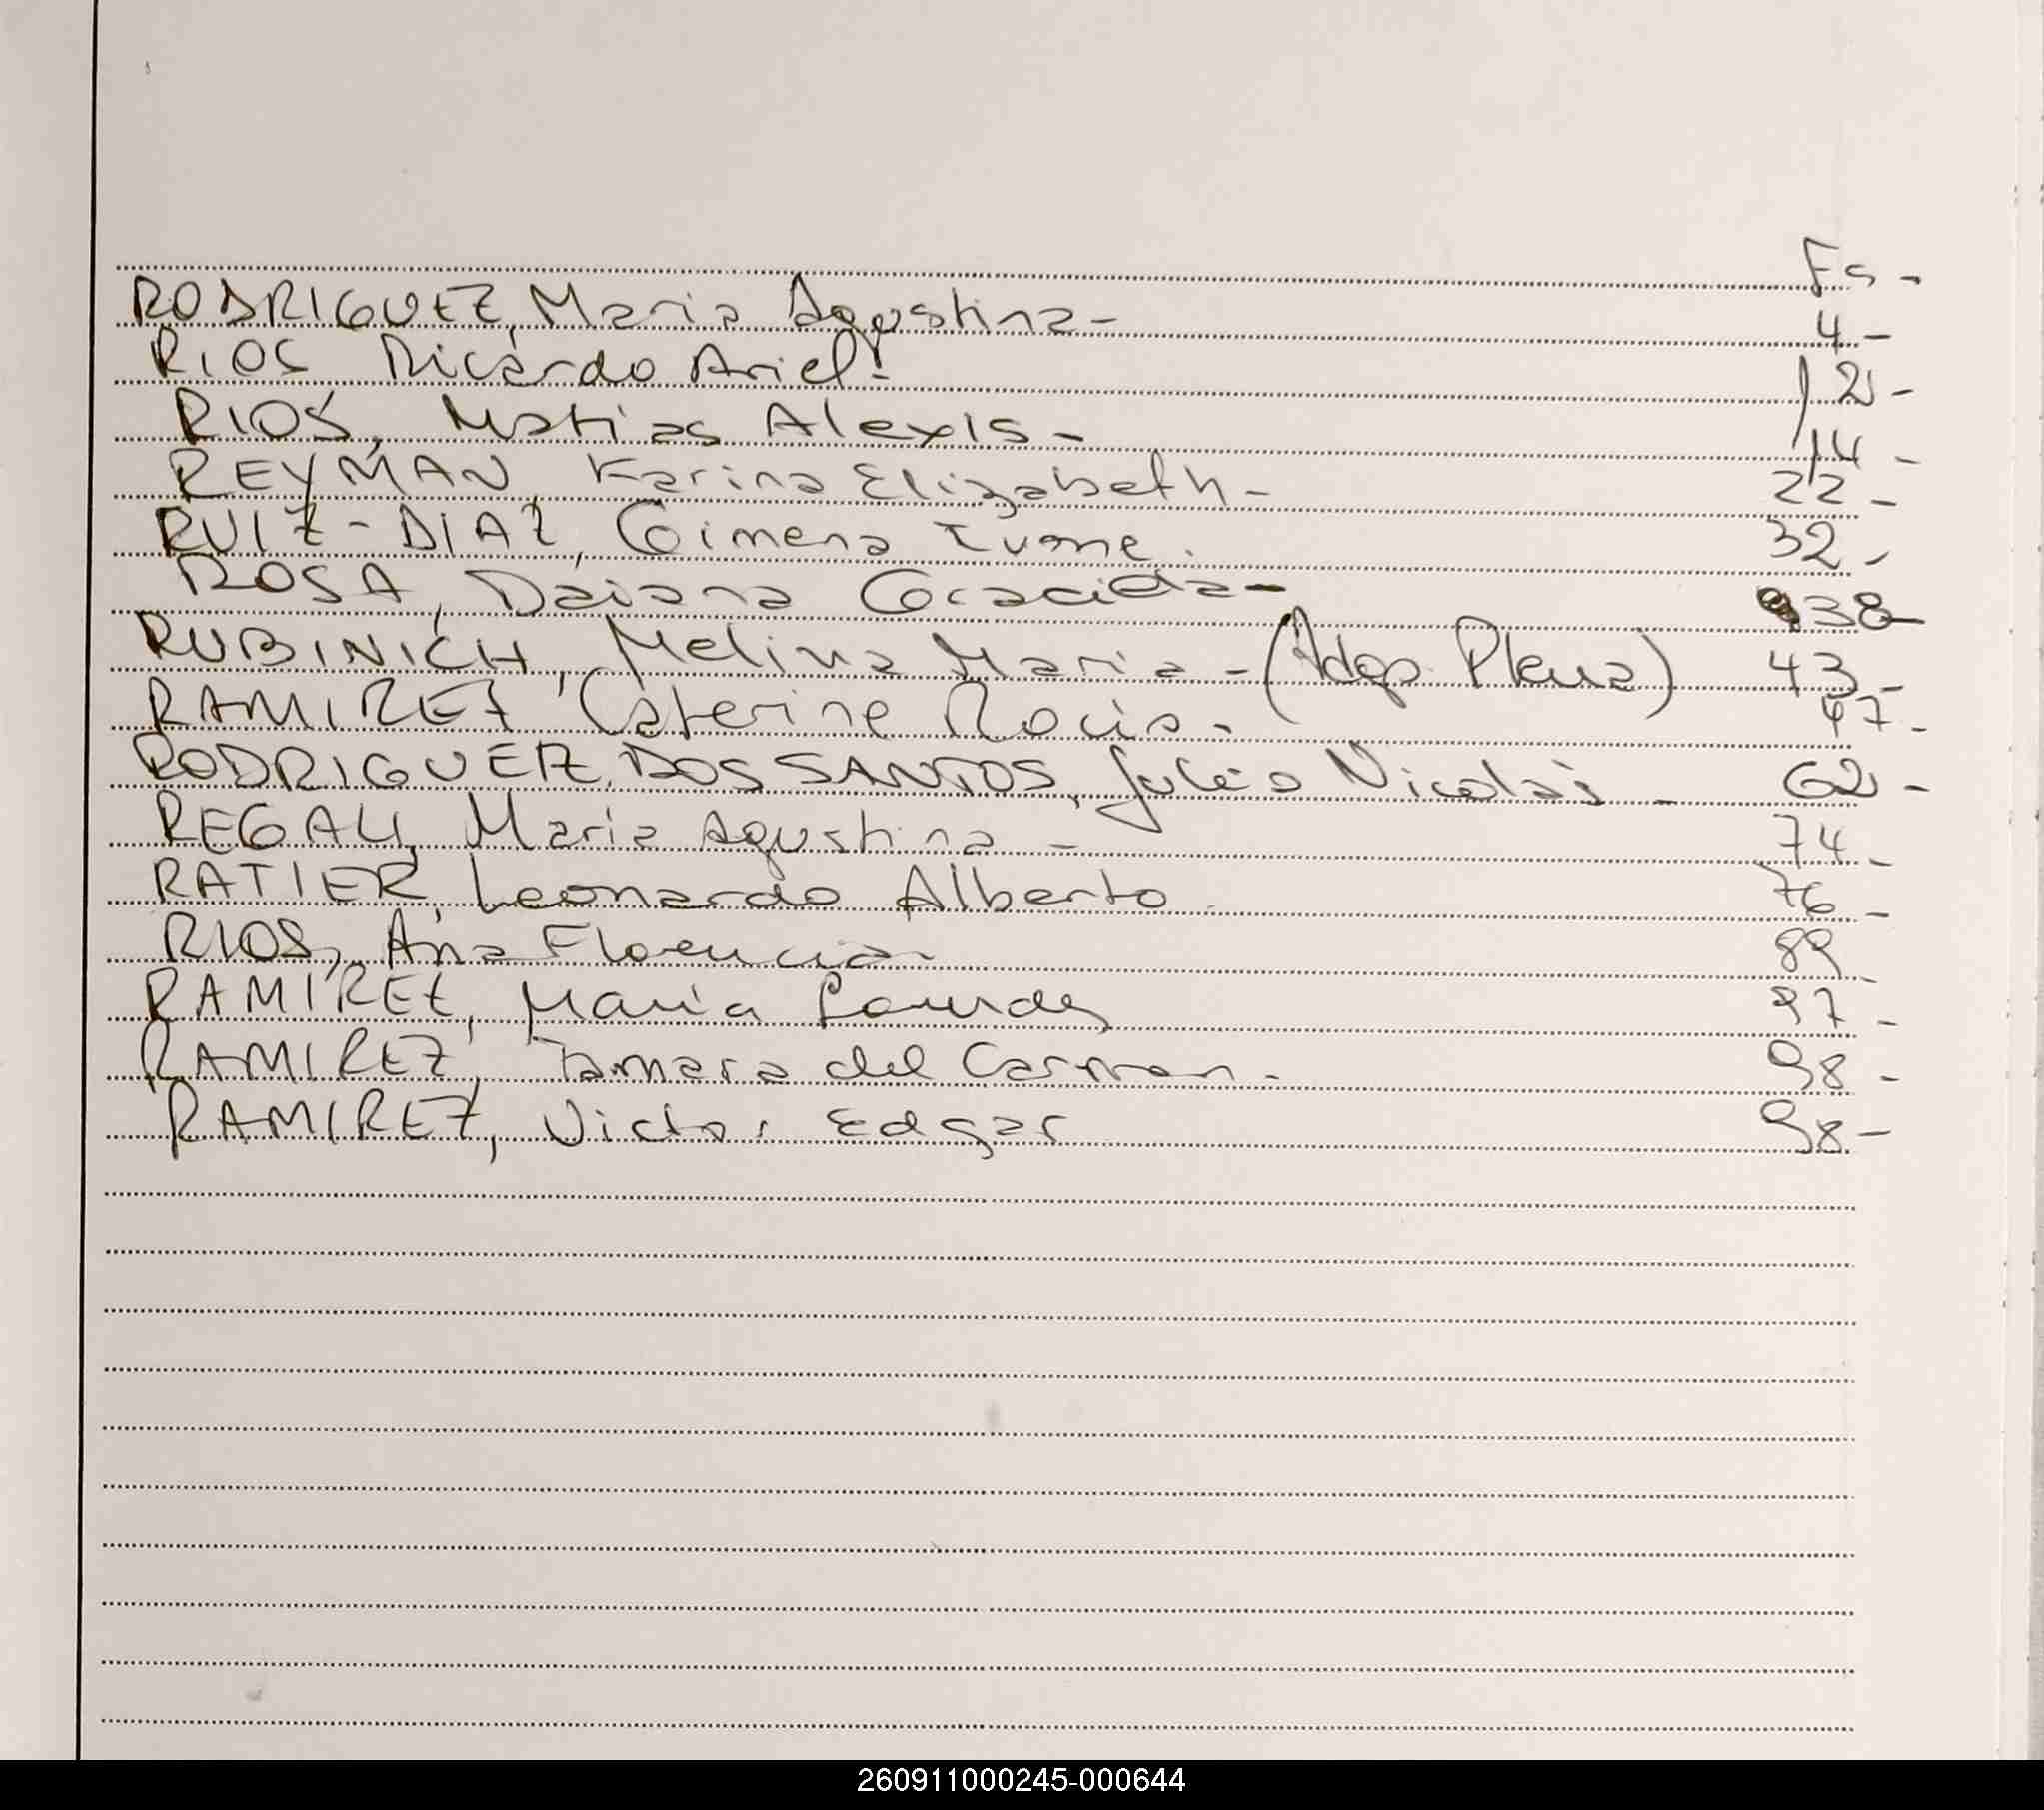 Fs -
RODRIGUEZ, Maria Agustina - 4 -
RIOS Ricardo Ariel - 12 -
RIOS, Matias Alexis - 14 -
REYMAN, Karina Elizabeth - 22 -
RUIZ-DIAZ, Gimena Ivone. 32 -
ROSA, Daiana Gracida - 38 -
RUBINICH, Melina Maria - (Adop. Plena) 43 -
RAMIREZ Caterine Rocio - 47 -
RODRIGUEZ, DOS SANTOS, Julio Nicolás - 62 -
REGALI, Maria Agustina - 74 -
RATIER, Leonardo Alberto 76 -
RIOS, Ana Florencia - 89 -
RAMIREZ, Maria Lourdes 97 -
RAMIREZ, Tamara del Carmen - 98 -
RAMIREZ, Victor Edgar 98 -
260911000245-000644